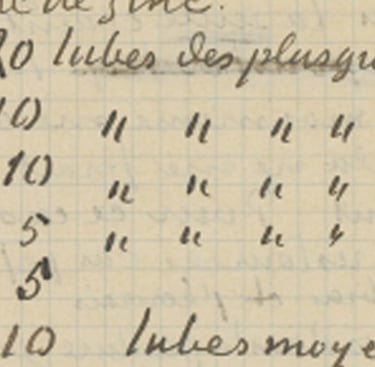 de zinc.
0 tubes des plusgr
10 " " " "
10 " " " "
5 " " " "
5
10 tubes moye